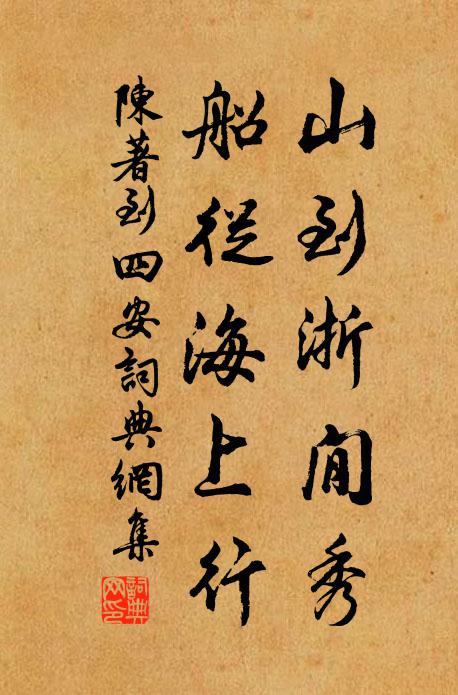 山到浙間秀
船從海上行
陳著到四安詞典網集
詞典网印